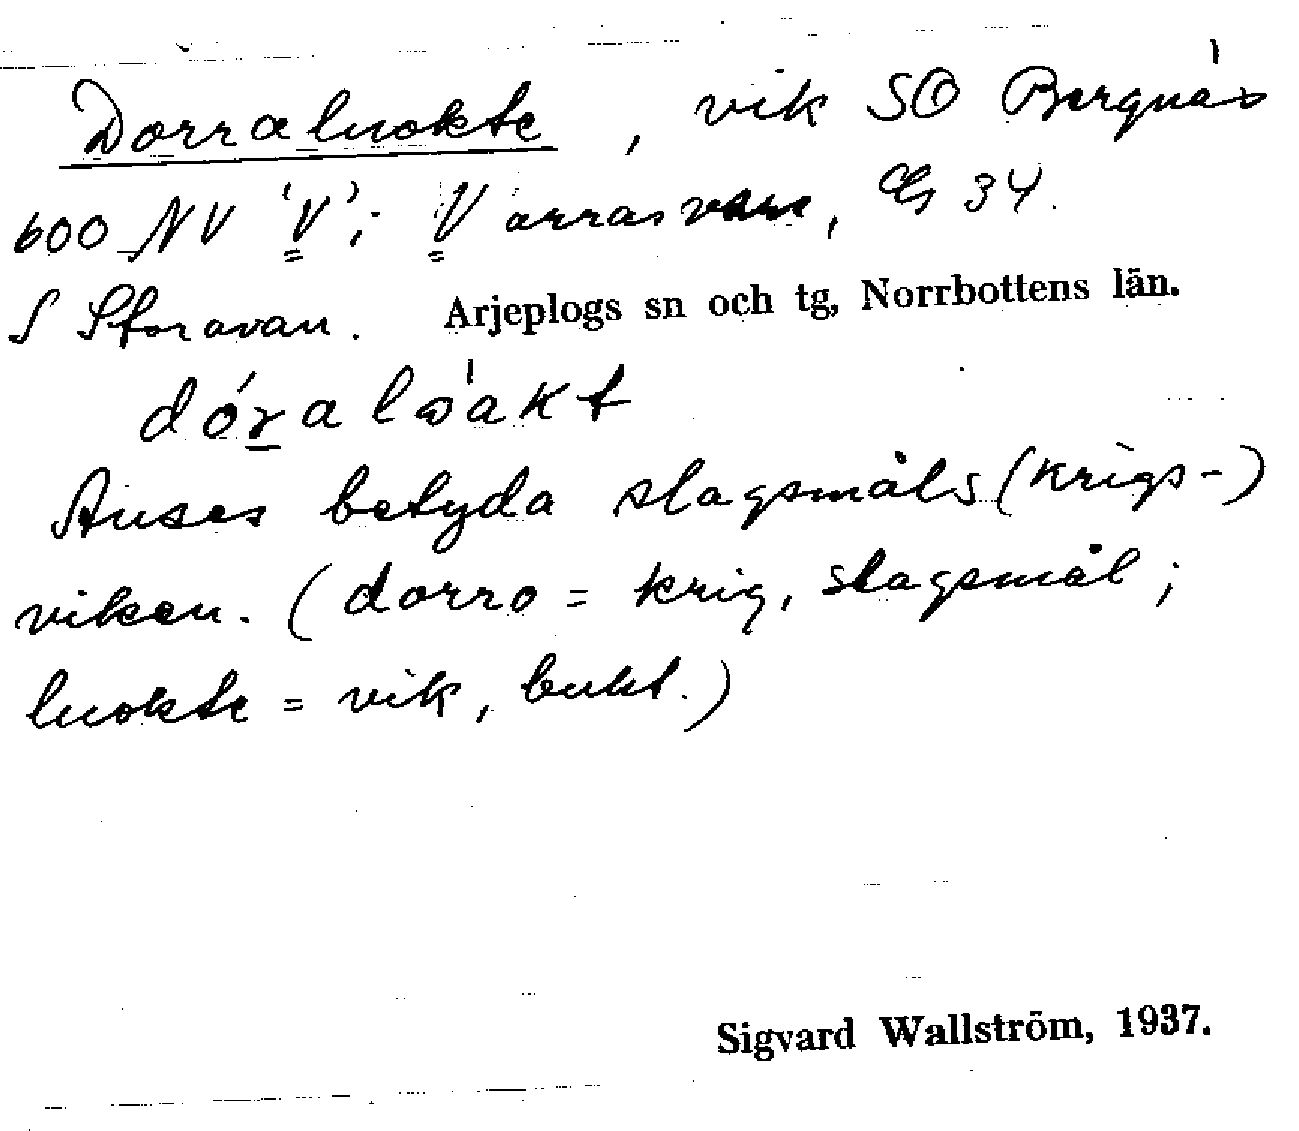 Dorraluokte, vik SO Bergnäs
600 NV 'V'; Varrasvare, Gs 34.
S Storavan. Arjeplogs sn och tg, Norrbottens län.
dóralωakt
Anses betyda slagsmåls (krigs-)
viken. (dorro = krig, slagsmål;
luokte = vik, bukt.)
Sigvard Wallström, 1937.